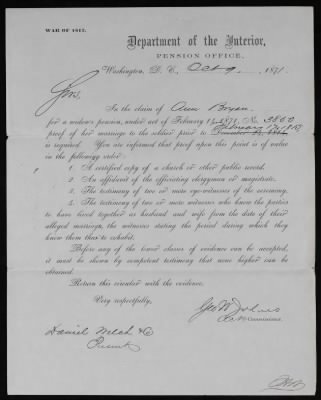 WAR OF 1812.
Department of the Interior,
PENSION OFFICE,
Washington, D. C., Oct 9, 1871.
Sirs,
In the claim of Ann Bryan
for a widow's pension, under act of February 14, 1871, No. 3860
proof of her marriage to the soldier prior to February 17, 1815
is required. You are informed that proof upon this point is of value
in the following order:
1. A certified copy of a church or other public record.
2. An affidavit of the officiating clergyman or magistrate.
3. The testimony of two or more eye-witnesses of the ceremony.
4. The testimony of two or more witnesses who know the parties
to have lived together as husband and wife from the date of their
alleged marriage, the witnesses stating the period during which they
knew them thus to cohabit.
Before any of the lower classes of evidence can be accepted,
it must be shown by competent testimony that none higher can be
obtained.
Return this circular with the evidence.
Very respectfully,
Commissioner.
Daniel Welch & Co
Present